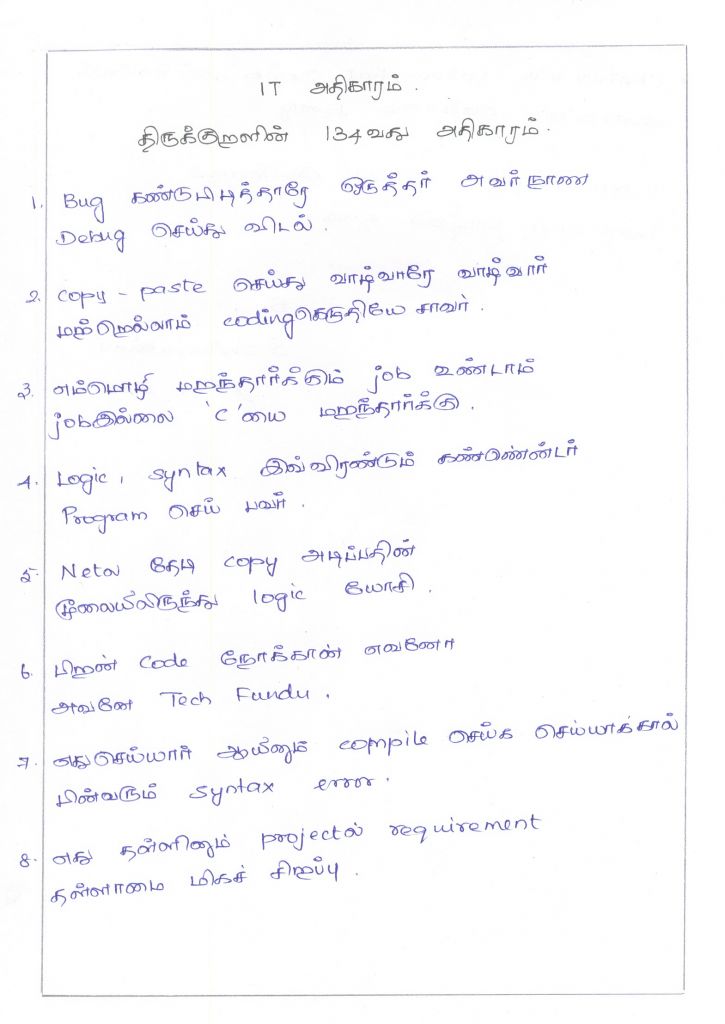 IT அதிகாரம்.
திருக்குறளின் 134வது அதிகாரம்.
1. Bug கண்டுபிடித்தாரே ஒருத்தர் அவர்நாண
Debug செய்து விடல்.
2. copy - paste செய்து வாழ்வாரே வாழ்வார்
மற்றெல்லாம் codingகெருதியே சாவர்.
3. எம்மொழி மறந்தார்க்கும் job உண்டாம்
jobஇல்லை 'C'யை மறந்தார்க்கு.
4. Logic, syntax இவ்விரண்டும் கண்ணென்டர்
Program செய் பவர்.
5. Netல தேடி copy அடிப்பதின்
மூலையிலிருந்து logic யோசி.
6. பிறன் Code நோக்கான் எவனோ
அவனே Tech Fundu.
7. எதுசெய்யார் ஆயினும் compile செய்க செய்யாக்கால்
பின்வரும் syntax error.
8. எது தள்ளினும் projectல் requirement
தள்ளாமை மிகச் சிறப்பு.